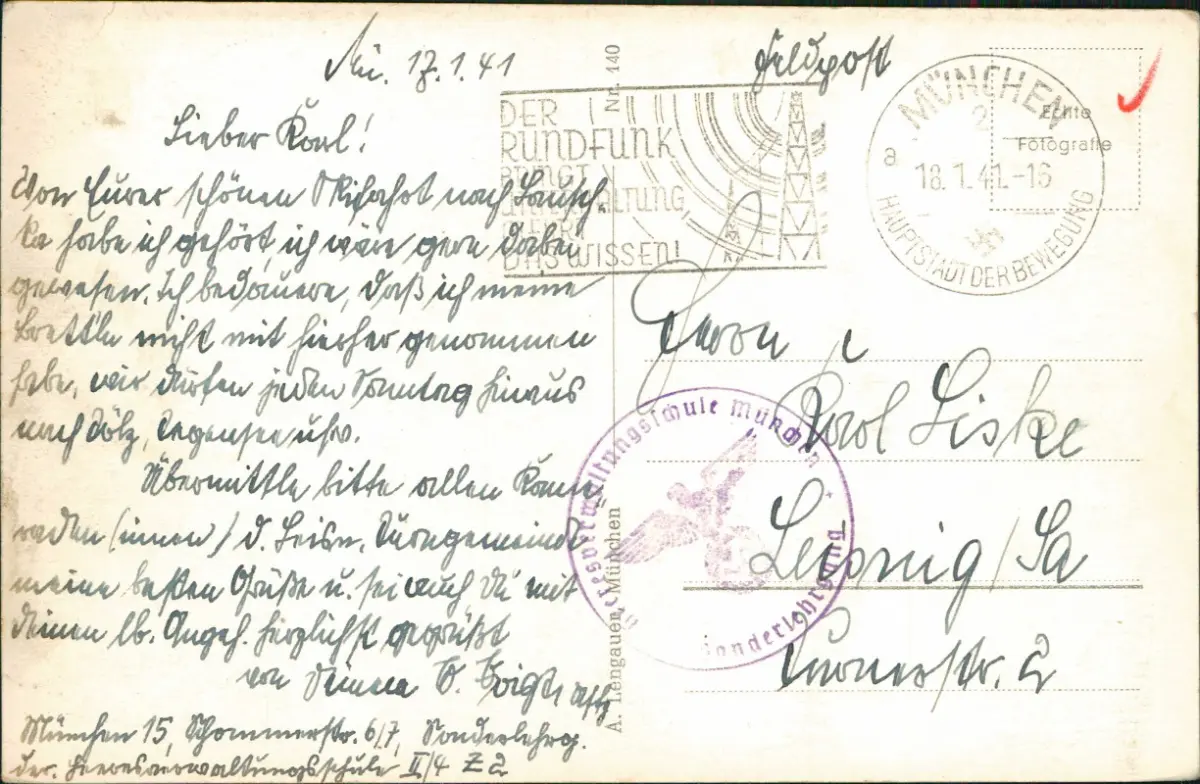 Mü. 17.1.41
Lieber Karl!
Von Eurer schönen Skifahrt nach Lausch-
ka habe ich gehört, ich wäre gern dabei
gewesen. Ich bedauere, daß ich meine
Brettln nicht mit hierher genommen
habe, wir dürfen jeden Sonntag hinaus
nach Tölz, Tegernsee usw.
Übermittle bitte allen Kame-
raden (innen) d. Leisn. Turngemeinde
meine besten Grüße u. sei auch Du mit
Deinen lb. Angeh. herzlichst gegrüßt
von Deinem Voigt
München 15, Schommerstr. 6/7, Sonderlehrg.
der Heeresverwaltungsschule II/4 Z 2
Nr. 140
A. Lengauer, München
Feldpost
DER
RUNDFUNK
BRINGT
UNTERHALTUNG
DAS WISSEN!
MÜNCHEN
2
a
18.1.41.-16
HAUPTSTADT DER BEWEGUNG
Echte
Fotografie
Herrn
Karl Liske
Leisnig/Sa
Turnerstr. 2
Heeresverwaltungsschule München
Sonderlehrgang